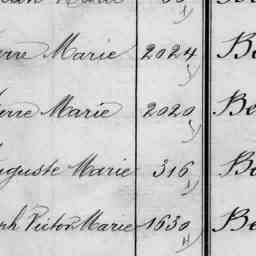 erre Marie 2024 Be
erre Marie 2020 Be
uguste Marie 316 Be
ph Victor Marie 1630 Be